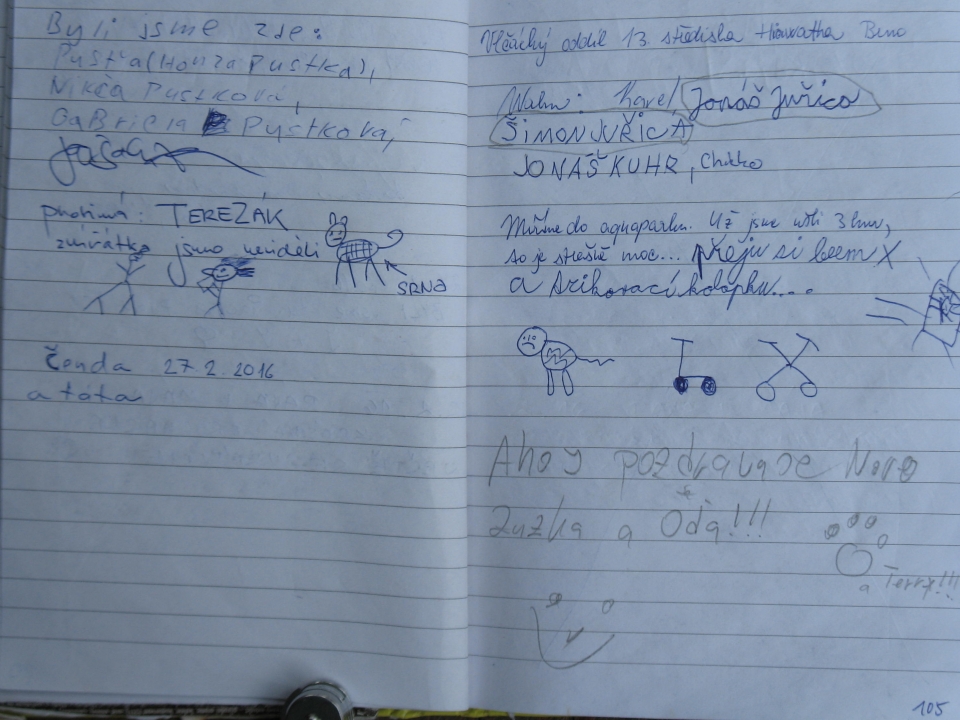 Byli jsme zde:
Pusťa (Honza Pustka),
Nikča Pustková,
GaBriela Pustková,
TEREZÁK
zvířátka jsme neviděli
SRNA
Čenda 27.2.2016
a táta
Vlčácký oddíl 13. střediska Hiawatha Brno
Karel Jonáš Juřica
ŠIMON JUŘICA
JONÁŠ KUHR,
Míříme do aquaparku. Už jsme ušli 3 km,
so je strašně moc... přeju si
a
Ahoj pozdravuje Nora
Zuzka a Oda!!!
a Terry!!!
105